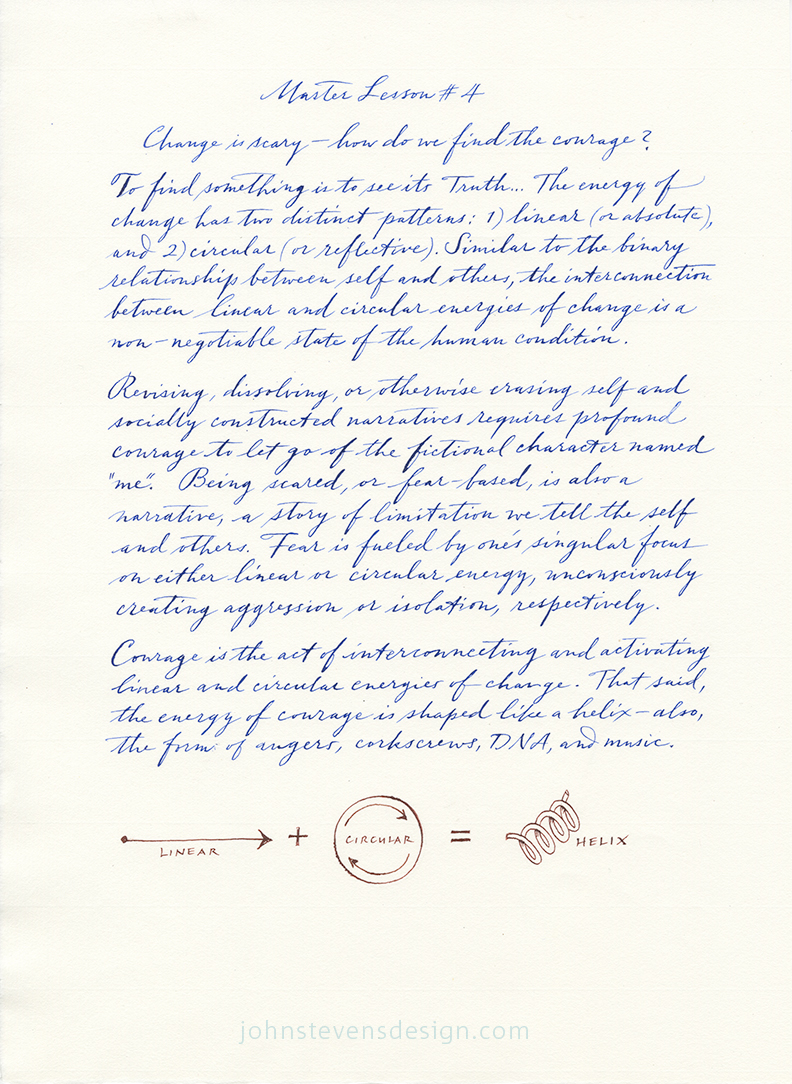 Master Lesson # 4
Change is scary – how do we find the courage?
To find something is to see its Truth... The energy of
change has two distinct patterns: 1) linear (or absolute),
and 2) circular (or reflective). Similar to the binary
relationship between self and others, the interconnection
between linear and circular energies of change is a
non-negotiable state of the human condition.
Revising, dissolving, or otherwise erasing self and
socially constructed narratives requires profound
courage to let go of the fictional character named
"me". Being scared, or fear-based, is also a
narrative, a story of limitation we tell the self
and others. Fear is fueled by one's singular focus
on either linear or circular energy, unconsciously
creating aggression or isolation, respectively.
Courage is the act of interconnecting and activating
linear and circular energies of change. That said,
the energy of courage is shaped like a helix – also,
the form of augers, corkscrews, DNA, and music.
LINEAR + CIRCULAR = HELIX
johnstevensdesign.com